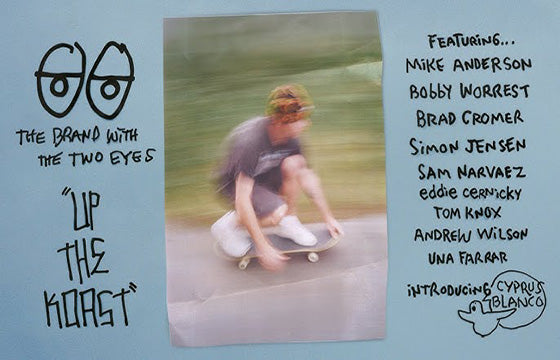 THE BRAND WITH
THE TWO EYES
"UP
THE
KOAST"
FEATURING...
MIKE ANDERSON
BOBBY WORREST
BRAD CROMER
SIMON JENSEN
SAM NARVAEZ
eddie cernicky
TOM KNOX
ANDREW WILSON
UNA FARRAR
INTRODUCING CYPRUS
BLANCO